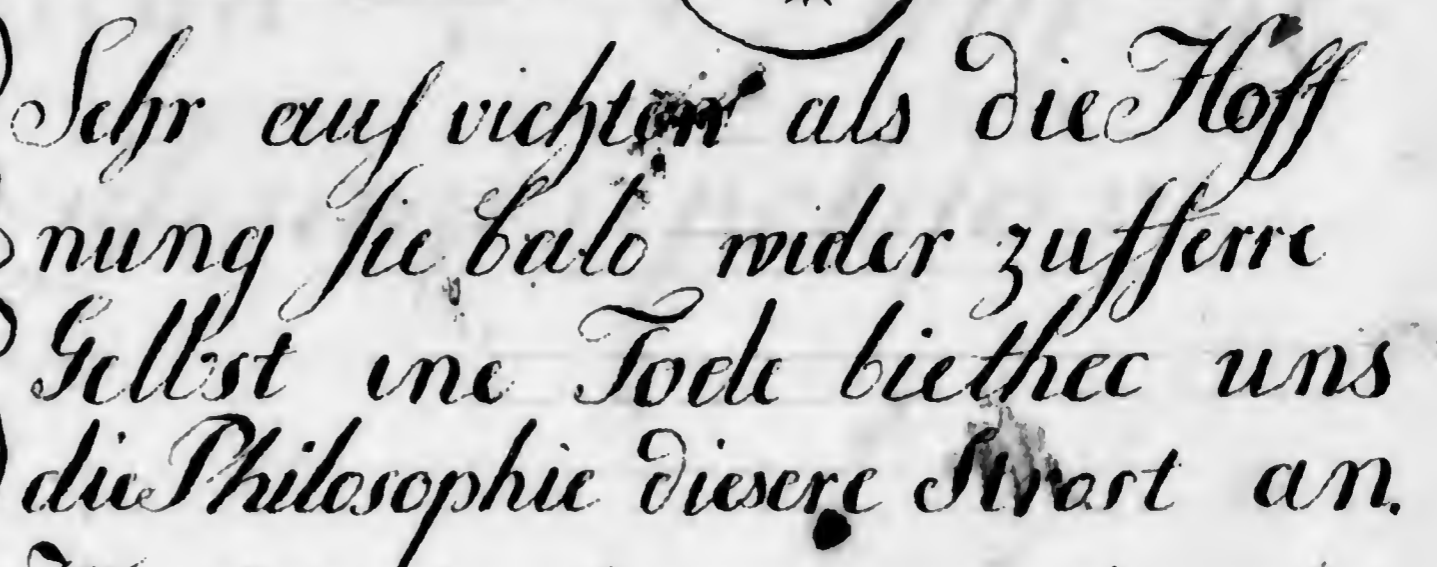 Sehr auf vichten als die Hoff
nung sie bald wider zufferre
Selbst ine Tode biethec uns
die Philosophie diesere Strost an.